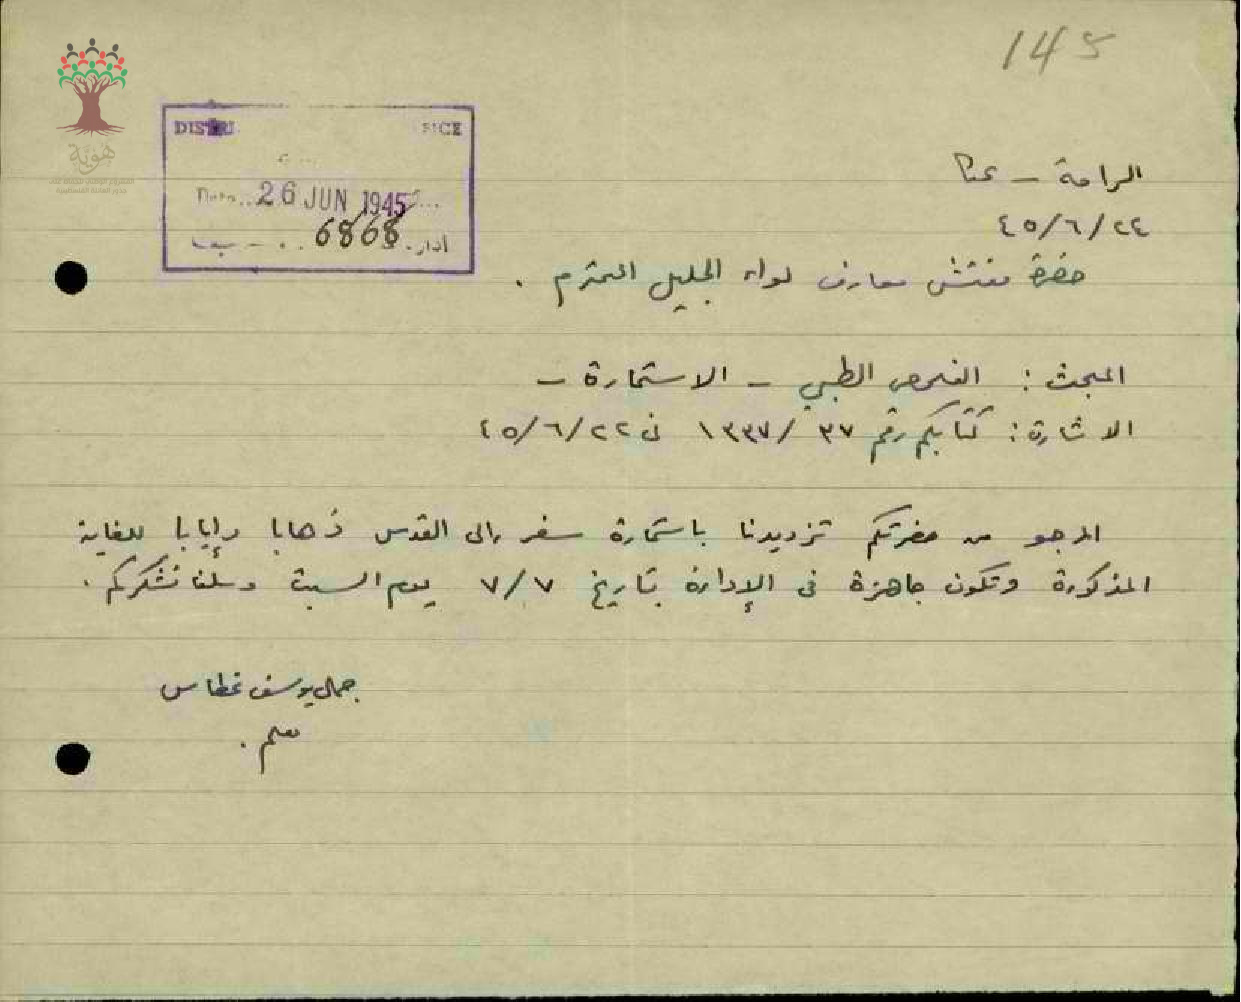 145
هوية
DISTRI FICE
Date 26 JUN 1945
6868
الرامة - عكا
٤٥/٦/٢٤
حضرة مفتش معارف لواء الجليل المحترم .
المبحث : الفحص الطبي - الاستمارة -
الاشارة : كتابكم رقم ٣٧ /١٣٣٧ في ٤٥/٦/٢٢
المرجو من حضرتكم تزويدنا باستمارة سفر إلى القدس ذهابا وإيابا للغاية
المذكورة وتكون جاهزة في الإدارة بتاريخ ٧/٧ يوم السبت وسلفا نشكركم .
جمال يوسف غطاس
معلم .